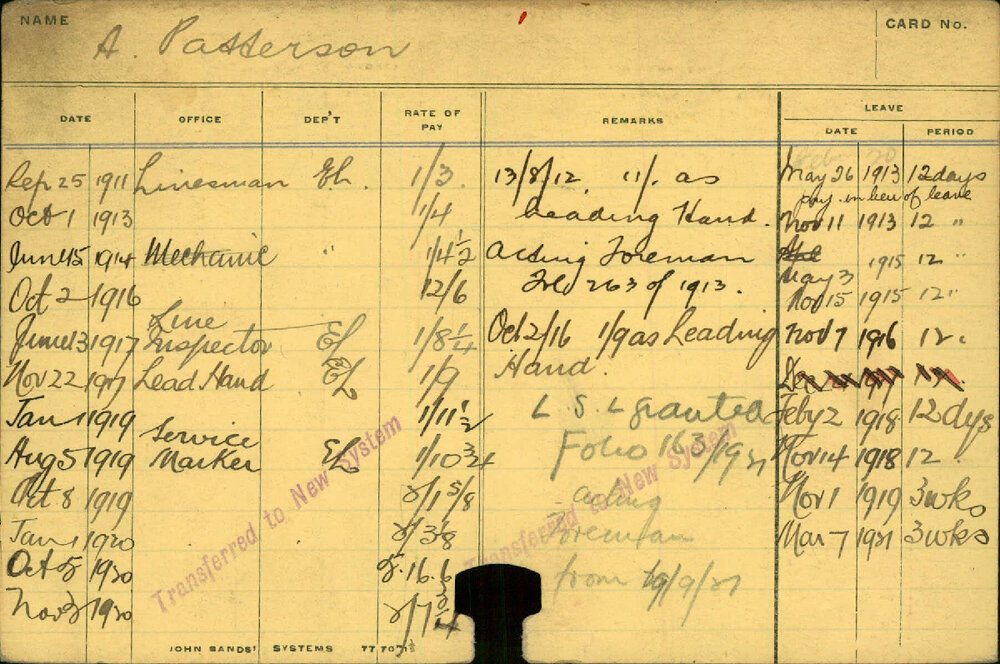 NAME
A. Patterson
CARD No.
DATE OFFICE DEP'T RATE OF PAY REMARKS LEAVE
DATE PERIOD
Sep 25 1911 Linesman El. 1/3 13/8/12. 11/. as May 26 1913 12 days
pay in lieu of leave
Oct 1 1913 1/4 Leading Hand. Nov 11 1913 12 "
June 15 1914 Mechanic " 1/4½ Acting Foreman May 3 1915 12 "
Oct 2 1916 12/6 Fol 263 of 1913. Nov 15 1915 12 "
Line
June 13 1917 Inspector El 1/8¼ Oct 2/16 1/9 as Leading Nov 7 1916 12.
Nov 22 1917 Lead Hand El 1/9 Hand.
Jan 1 1919 1/11½ L. S. L granted Feby 2 1918 12 dys
Service
Aug 5 1919 Marker El 1/10¾ Folio 163/1921 Nov 14 1918 12.
Oct 8 1919 2/1 5/8 acting Nov 1 1919 3 wks
Jan 1 1920 2/3 3/8 Foreman Mar 7 1921 3 wks
Oct 1920 5.16.6 from 19/9/21
Nov 1920 2/7
Transferred to New System
Transferred to New System
JOHN SANDS' SYSTEMS